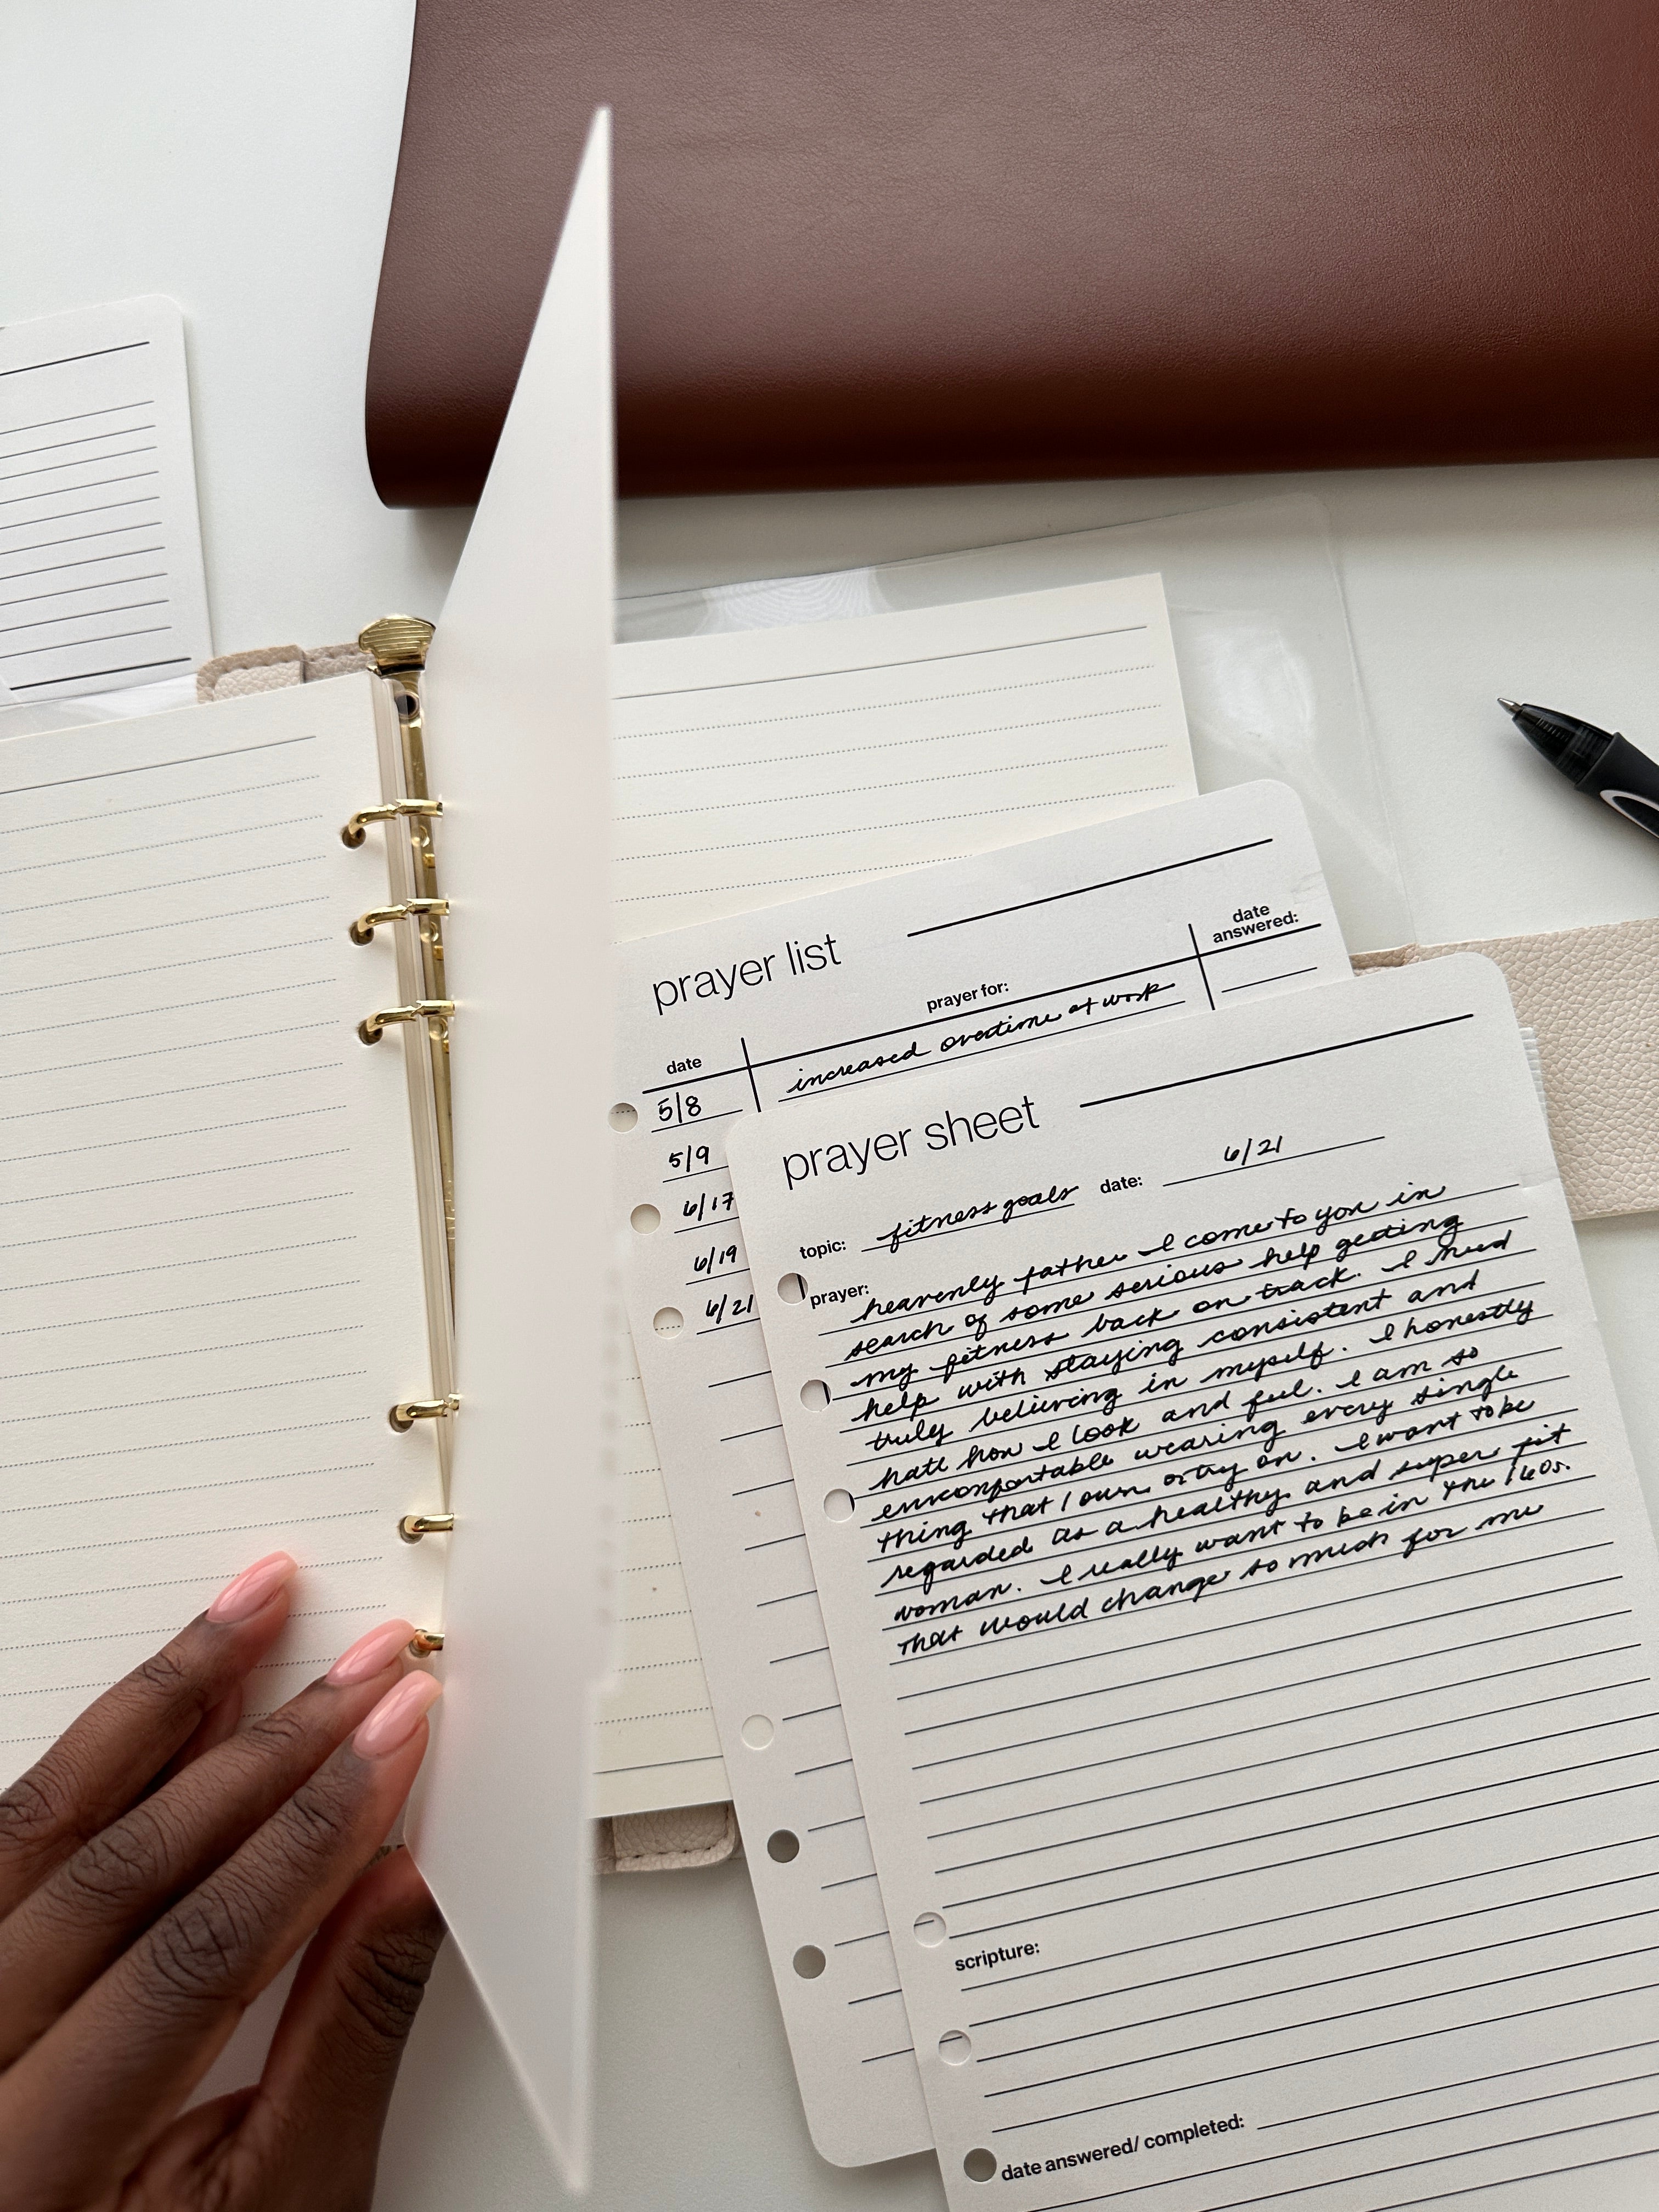 prayer list
date answered:
prayer for:
date
increased overtime at work
5/8
5/9
6/17
6/19
6/21
prayer sheet
topic: fitness goals date: 6/21
prayer: heavenly father I come to you in
search of some serious help getting
my fitness back on track. I need
help with staying consistent and
truly believing in myself. I honestly
hate how I look and feel. I am so
uncomfortable wearing every single
thing that I own or try on. I want to be
regarded as a healthy and super fit
woman. I really want to be in the 160s.
that would change so much for me
scripture:
date answered/ completed: